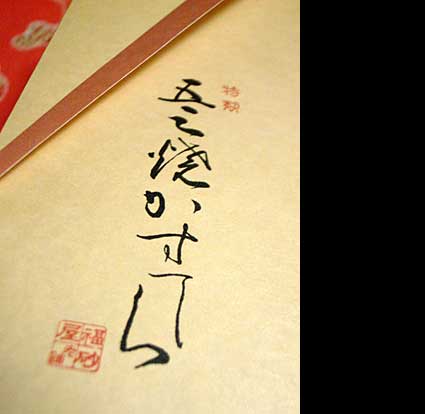 特製
五三焼かすてら
福砂屋本舗